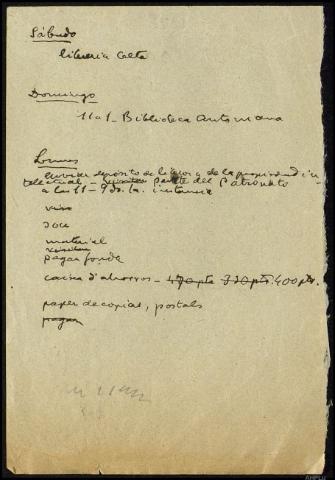 Sábado
libreria Calta
Domingo
11 a 1 - Biblioteca Automana
Lunes
enviar depósito de la de la propiedad in-
telectual - parte del Patronato
a las 11 - 9 do. la. instancia
doce
material
pagar fonda
caixa d'ahorros - 470 pts 330 pts. 400 pts.
paper de copias, postals
pagar